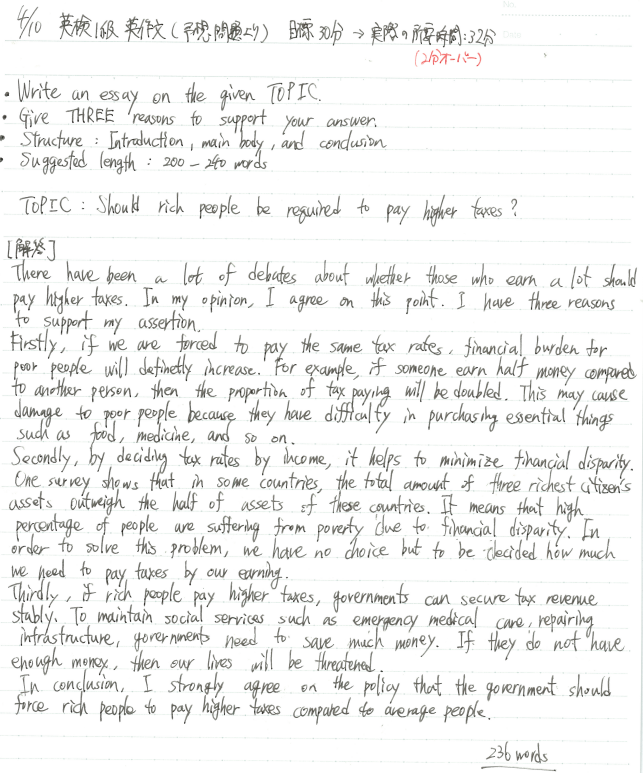 4/10 英検1級 英作文(予想問題より) 目標30分 → 実際の所要時間:32分
(2分オーバー)
• Write an essay on the given TOPIC.
• Give THREE reasons to support your answer.
• Structure : Introduction, main body, and conclusion
• Suggested length : 200 – 240 words
TOPIC : Should rich people be required to pay higher taxes?
[解答]
There have been a lot of debates about whether those who earn a lot should
pay higher taxes. In my opinion, I agree on this point. I have three reasons
to support my assertion.
Firstly, if we are forced to pay the same tax rates, financial burden for
poor people will definetly increase. For example, if someone earn half money compared
to another person, then the proportion of tax paying will be doubled. This may cause
damage to poor people because they have difficulty in purchasing essential things
such as food, medicine, and so on.
Secondly, by deciding tax rates by income, it helps to minimize financial disparity.
One survey shows that in some countries, the total amount of three richest citizen's
assets outweigh the half of assets of these countries. It means that high
percentage of people are suffering from poverty due to financial disparity. In
order to solve this problem, we have no choice but to be decided how much
we need to pay taxes by our earning.
Thirdly, if rich people pay higher taxes, governments can secure tax revenue
stably. To maintain social services such as emergency medical care, repairing
infrastructure, governments need to save much money. If they do not have
enough money, then our lives will be threatened.
In conclusion, I strongly agree on the policy that the government should
force rich people to pay higher taxes compared to average people.
236 words